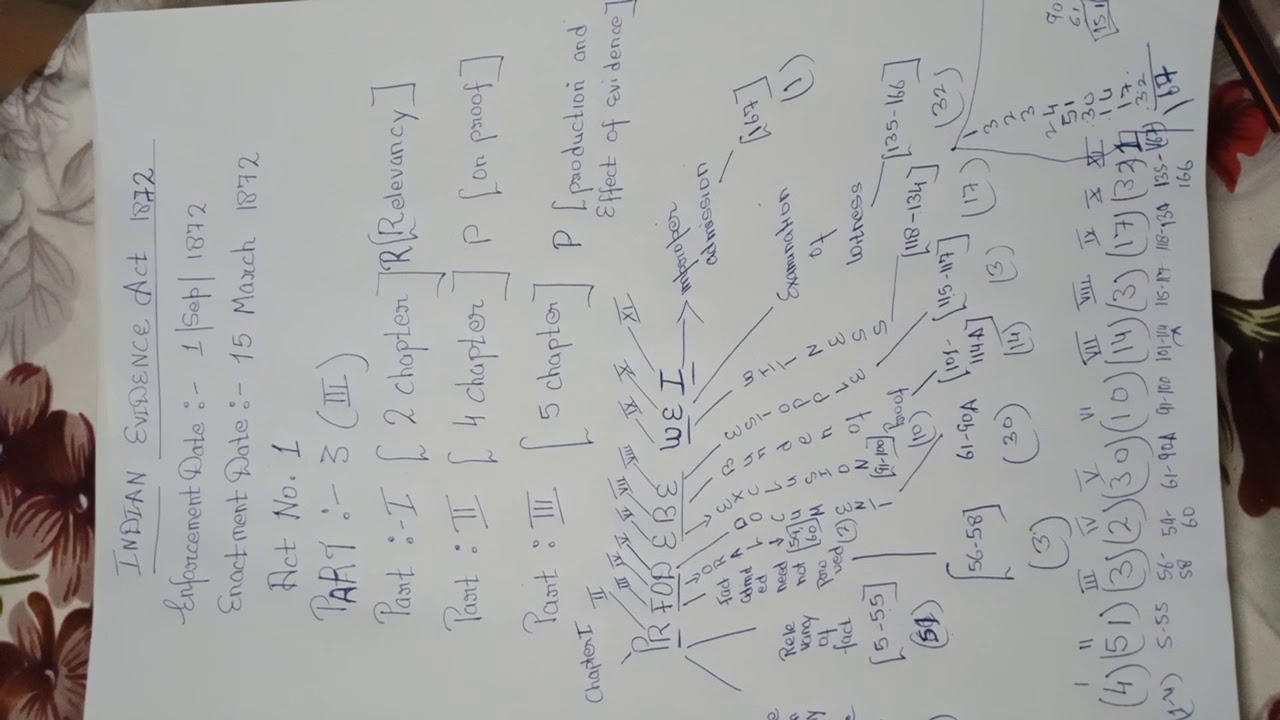 INDIAN EVIDENCE Act 1872
Enforcement Date :- 1 | Sep | 1872
Enactment Date :- 15 March 1872
Act No. 1
PART :- 3 (III)
Part :- I [2 chapter] R [Relevancy]
Part : II [4 chapter] P [on proof]
Part : III [5 chapter] P [production and
Effect of evidence]
Chapter I II III IV V VI VII VIII IX X XI
PRFODEBEWEI
Improper
admission
[167]
(1)
Examination
of
witness
[135-166]
(32)
[118-134]
(17)
[115-117]
(3)
[101-
114A]
(14)
[91-100]
(10)
61-90A
(30)
[59,
60]
(2)
Fact
admitt
ed
need
not
prov
ved
[56-58]
(3)
Rele
vancy
of
fact
[5-55]
(51)
I II III IV V VI VII VIII IX X XI
(4) (51) (3) (2) (30) (10) (14) (3) (17) (32) 1
(1-4) 5-55 56-58 59-60 61-90A 91-100 101-114A 115-17 118-134 135-166 (167)
1
3
2
3
24
51
30
14
17
32
167
90
61
151